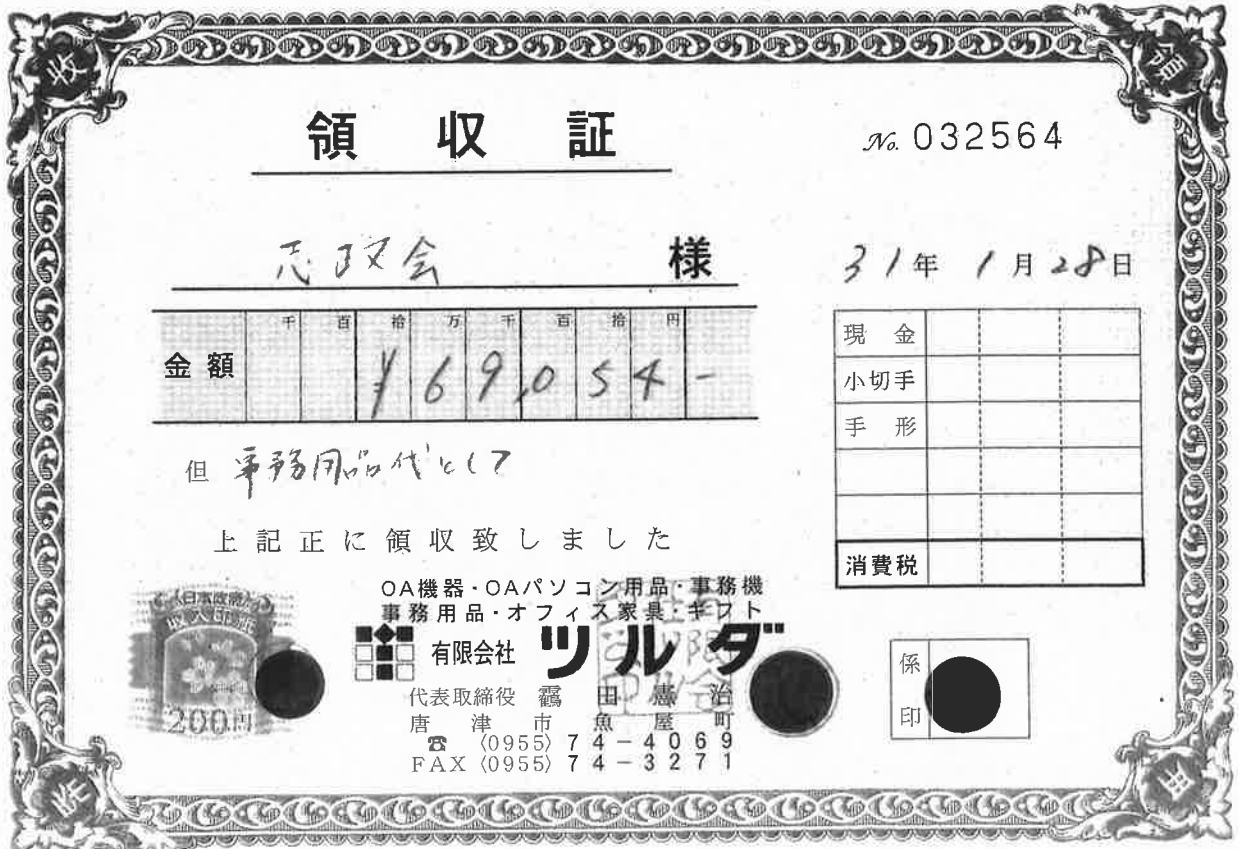 収
領
領収証
No. 032564
志政会 様
31年 1月28日
千 百 拾 万 千 百 拾 円
金額 ¥69,054-
現金
小切手
手形
消費税
但 事務用品代として
上記正に領収致しました
日本政府
収入印紙
200円
OA機器・OAパソコン用品・事務機
事務用品・オフィス家具・ギフト
有限会社 ツルダ
代表取締役 靏田憲治
唐津市魚屋町
☎ (0955) 74-4069
FAX (0955) 74-3271
係印